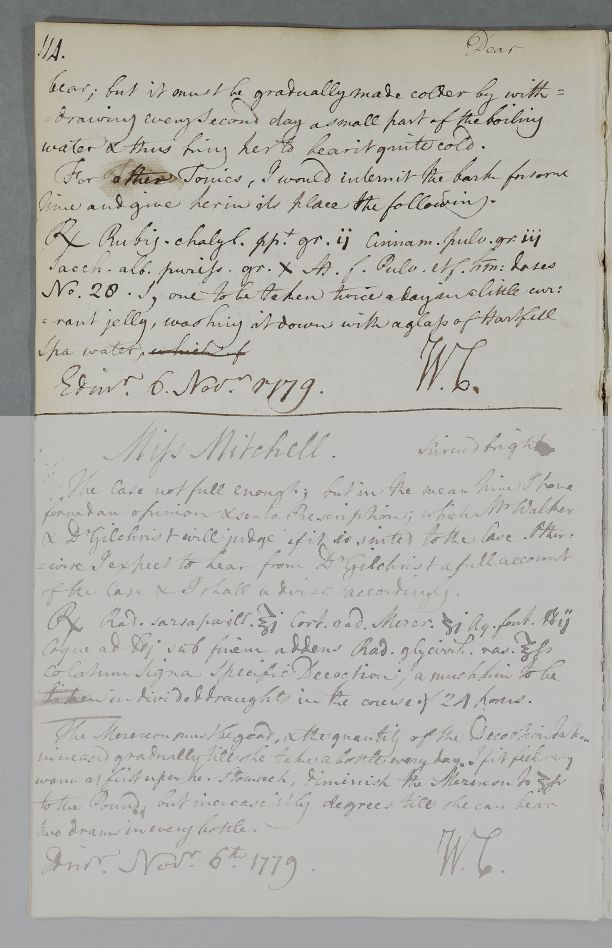 114.
Dear
bear; but it must be gradually made colder by with=
=drawing every second day a small part of the boiling
water & thus bring her to bear it quite cold.
For other Tonics, I would intermit the bark for some
time and give her in its place the following.
℞ Rubig. chalyb. ppt. gr. ij Cinnam. pulv. gr. iij
Sacch. alb. puriss. gr. X M. f. Pulv. et f. hm: doses
No. 28. S, one to be taken twice a day in a little cur:
=rant jelly, washing it down with a glass of Hartfell
Spa water, which f
Edinr. 6. Novr. 1779. W. C.
Miss Mitchell. Kircudbright
The Case not full enough; but in the mean time I have
formed an opinion & sent a Prescription; which Mr Walker
& Dr Gilchrist will judge if it is suited to the Case. Other:
=wise I expect to hear from Dr Gilchrist a full account
of the Case & I shall advise accordingly.
℞ Rad. sarsaparill. ℥j Cort. rad. Mezer. ʒj Aq. font. ℔ij
Coque ad ℔j sub finem addens Rad. glycirrh. ras. ℥ſs
Colatum signa Specific Decoction, a muchkin to be
taken in divided draughts in the course of 24 hours.
The Mezereon must be good, & the quantity of the Decoction
increased gradually till she take a bottle every day. If it feel very
warm at first upon her Stomach, diminish the Mezereon to ʒſs
to the Pound, but increase it by degrees till she can bear
two drams in every bottle.
Edinr. Novr. 6th. 1779. W. C.